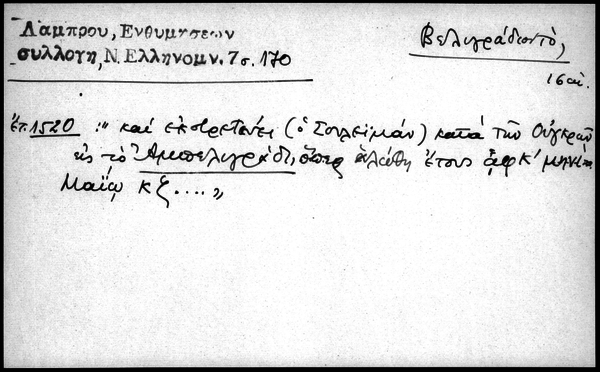 Λάμπρου, Ενθυμήσεων
συλλογή, Ν. Ελληνομν. 7 σ. 170
Βελιγράδιον τό,
16 αἰ.
ἔτ. 1520 :" καί ἐκστρατεύει (ὁ Σουλεϊμάν) κατά τῶν Οὔγκρων
εἰς τό Ἀμπελιγράδι, ὅπερ ἑλώθη ἔτους ͵αφκ' μηνί
Μαΐῳ κζ .... „